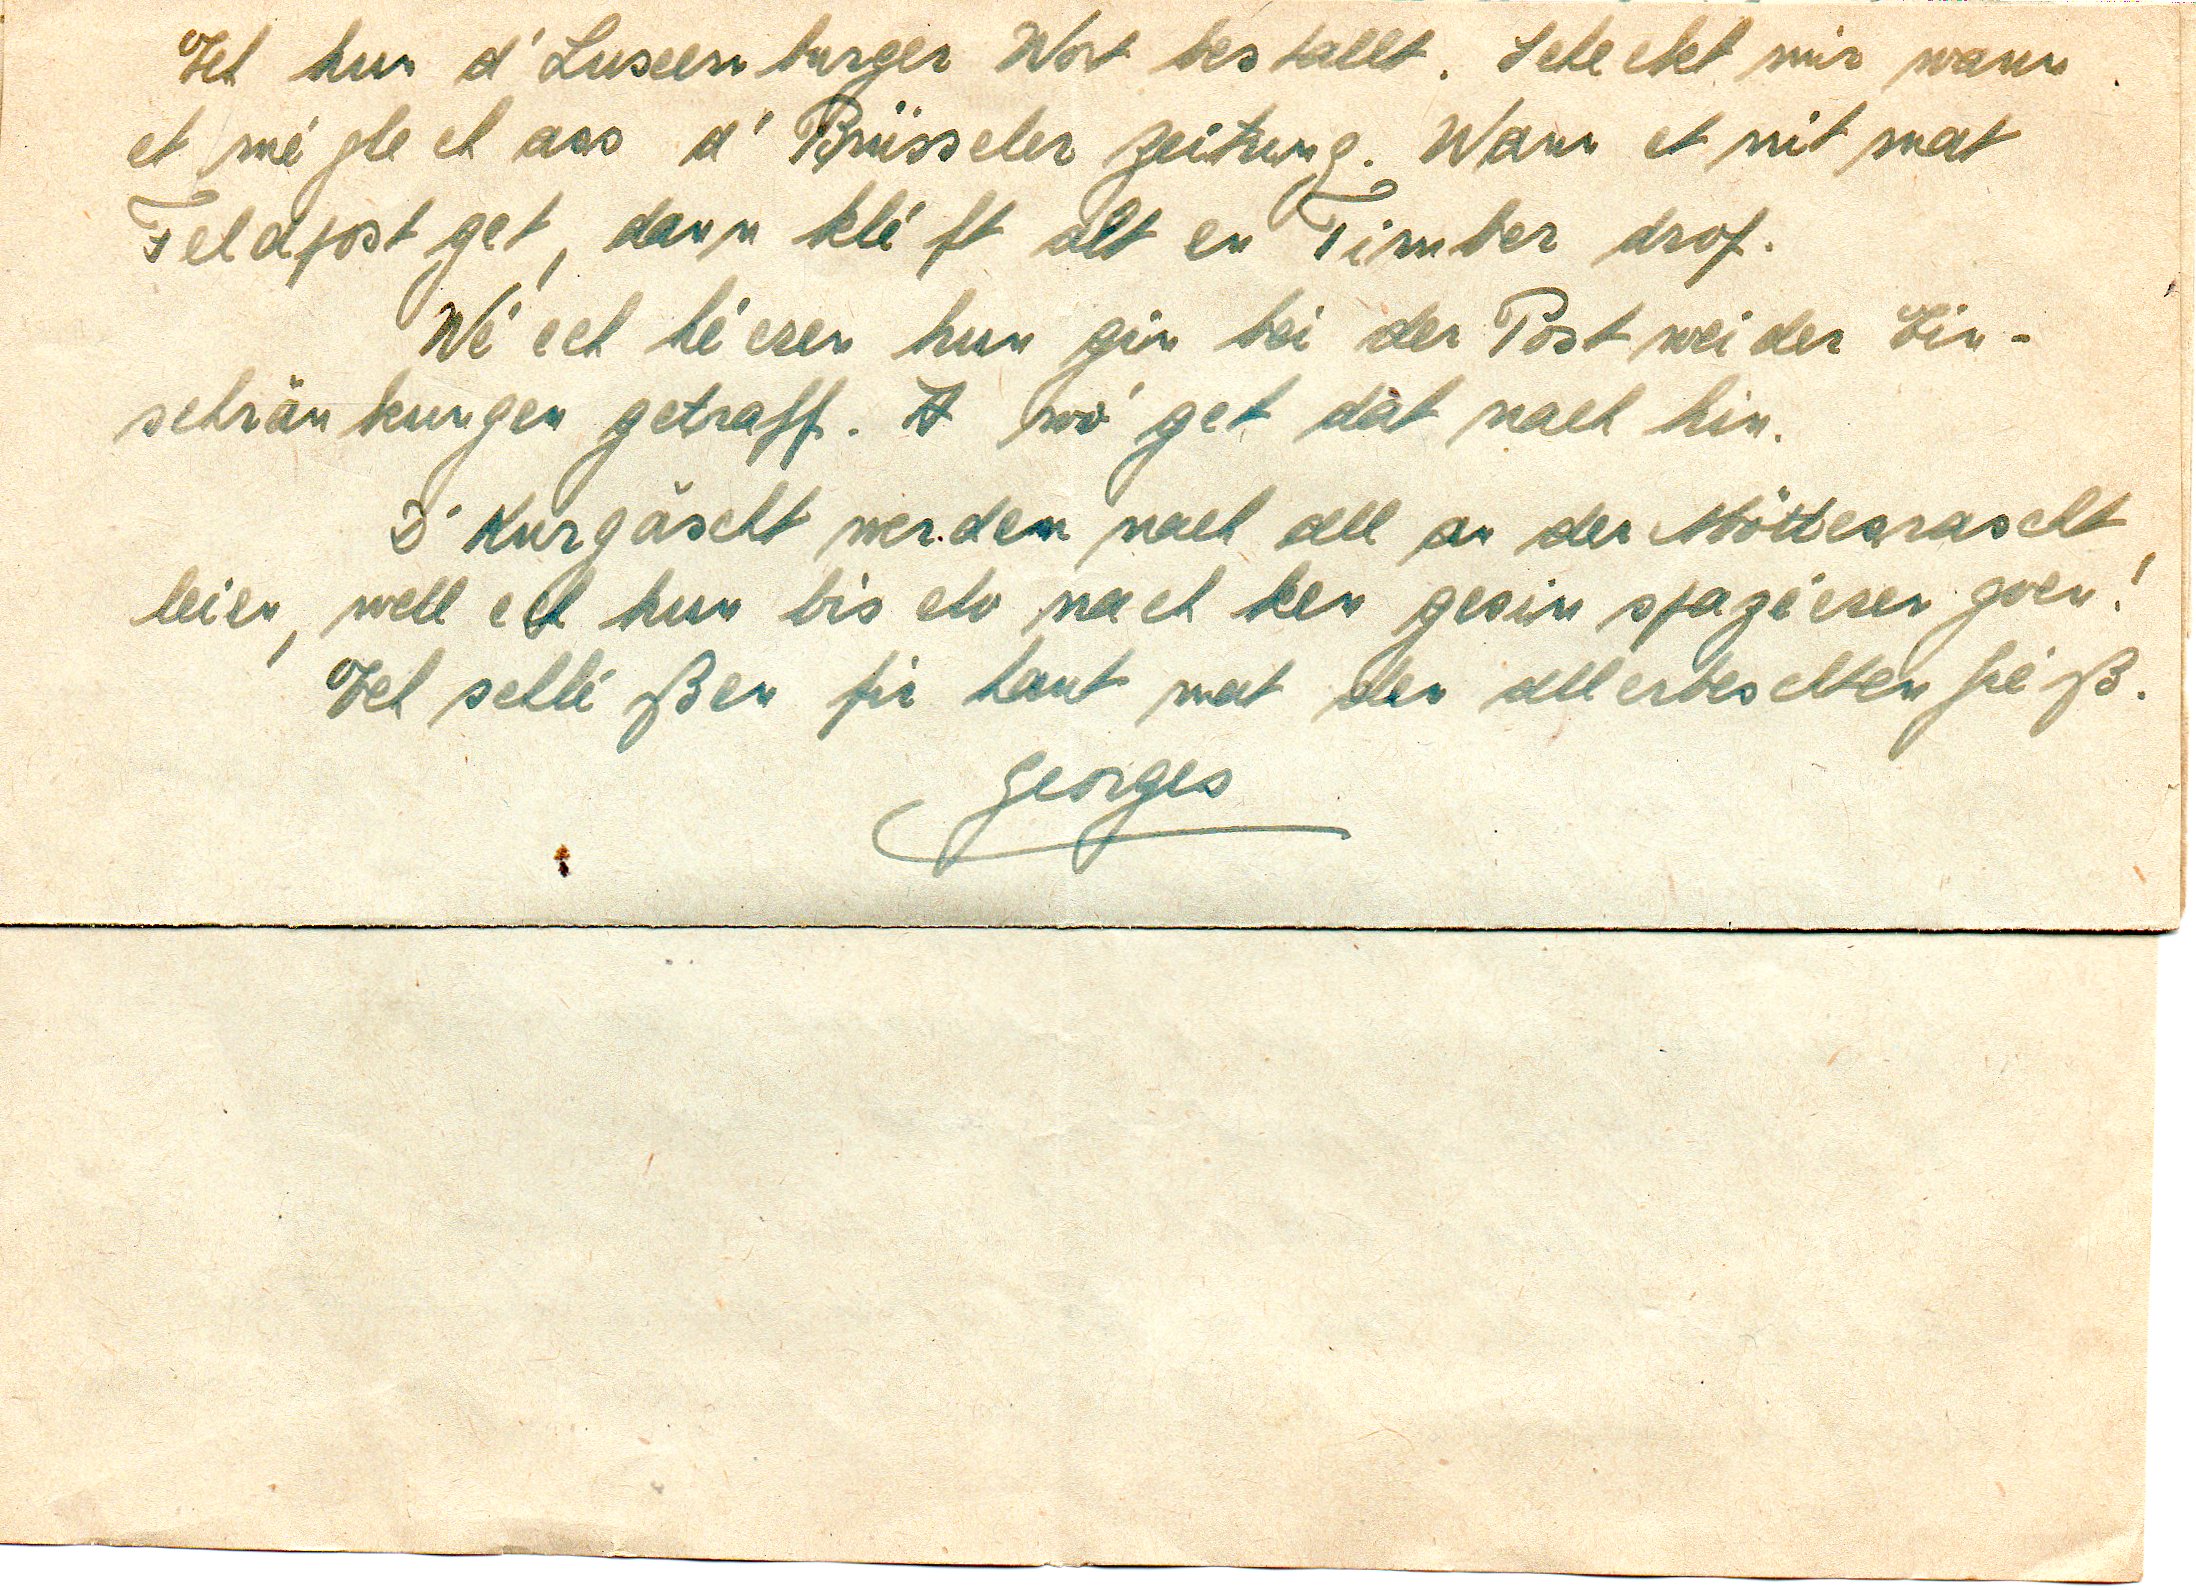 Ech hun d'Luxemburger Wort bestallt. Schéckt mir wann
et méglech ass d'Brüsseler Zeitung. Wann et nit mat
Feldpost get, dann kléft alt en Timber drof.
Wé ech héeren hun gin bei der Post weider Ein-
schränkungen getraff. A wó get dat nach hin.
D'Kurgäscht werden nach all an der
leien, well ech hun bis elo nach ken gesin spazéeren goen!
Ech schléßen fir haut mat den allerbeschten Gréß.
Georges